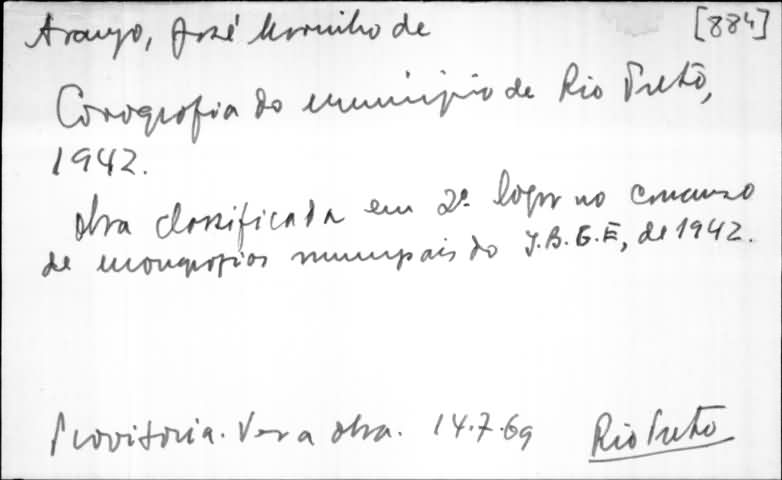 Araujo, José Marinho de [884]
Corografia do município de Rio Preto,
1942.
Obra classificada em 2º lugar no concurso
de monografias municipais do I.B.G.E, de 1942.
Provisória. Ver a obra. 14.7.69 Rio Preto